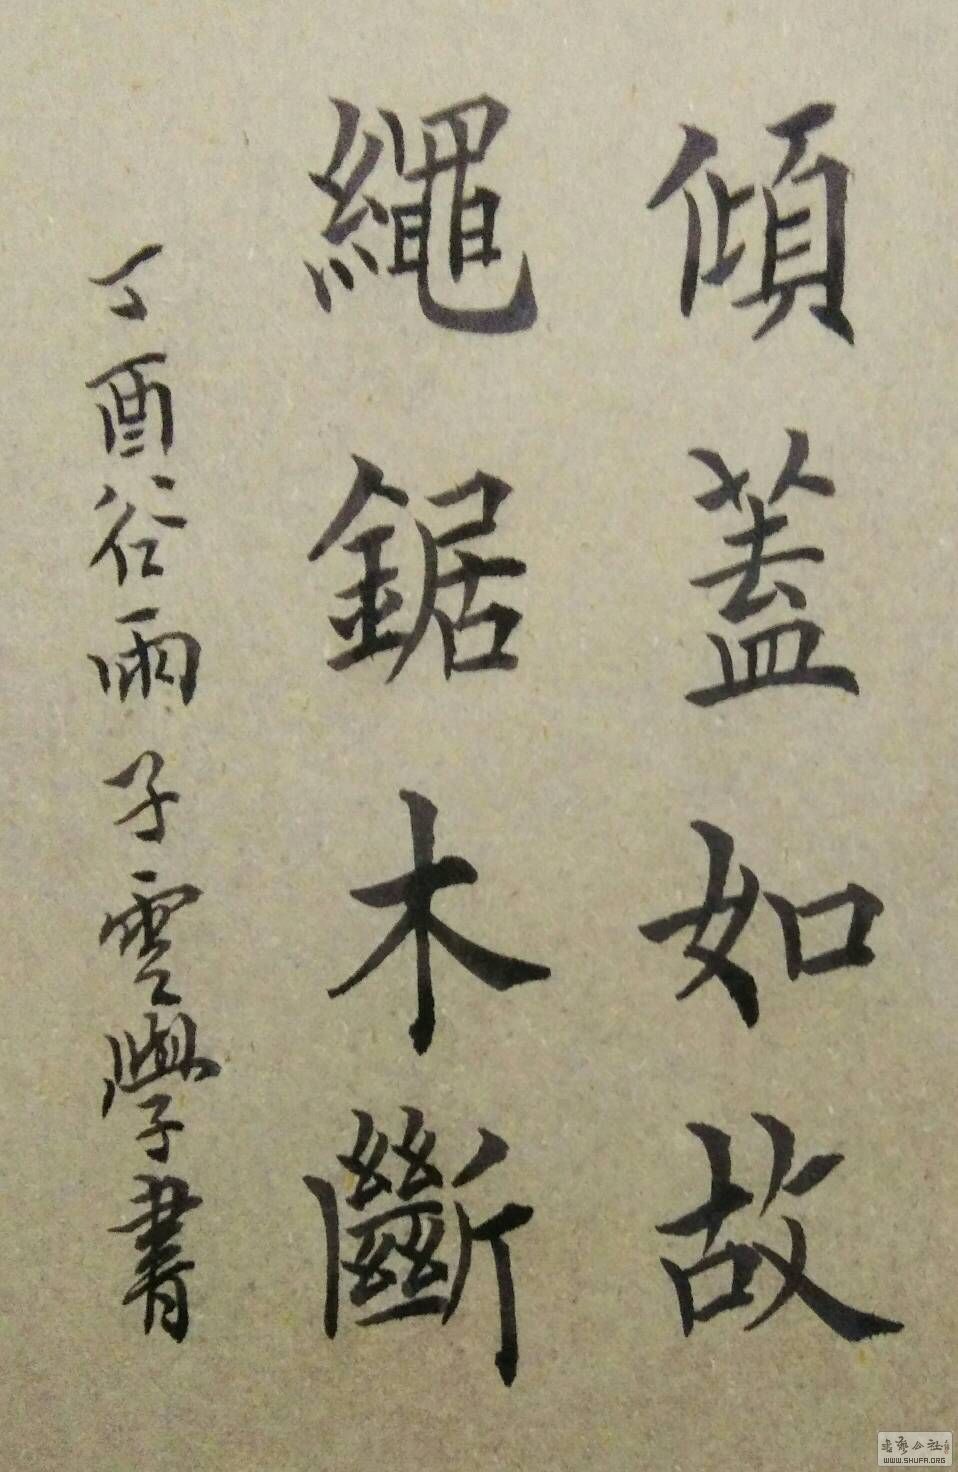 傾蓋如故
繩鋸木斷
丁酉谷雨子雲學書
書藝公社
WWW.SHUFA.ORG